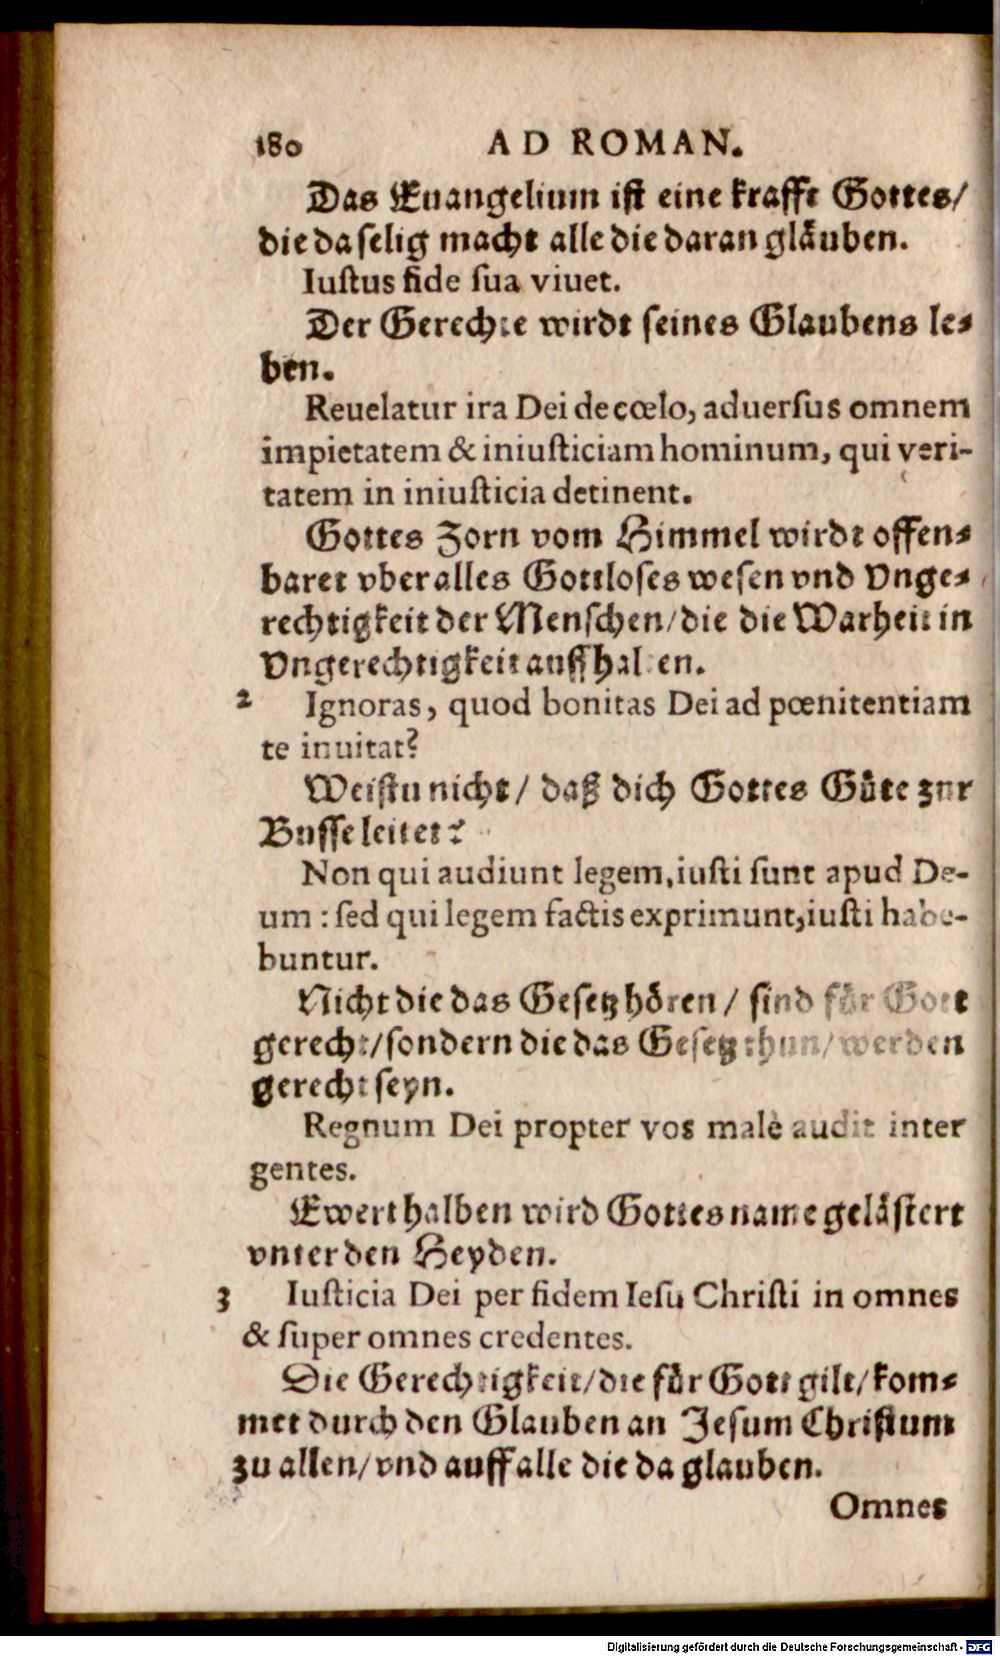 180 AD ROMAN.
Das Euangelium ist eine krafft Gottes/
die da selig macht alle die daran gläuben.
Iustus fide sua viuet.
Der Gerechte wirdt seines Glaubens le-
ben.
Reuelatur ira Dei de cœlo, aduersus omnem
impietatem & iniusticiam hominum, qui veri-
tatem in iniusticia detinent.
Gottes Zorn vom Himmel wirdt offen-
baret vber alles Gottloses wesen vnd Vnge-
rechtigkeit der Menschen/die die Warheit in
Vngerechtigkeit auffhalten.
2 Ignoras, quod bonitas Dei ad pœnitentiam
te inuitat?
Weistu nicht/ daß dich Gottes Güte zur
Busse leitet?
Non qui audiunt legem, iusti sunt apud De-
um : sed qui legem factis exprimunt, iusti habe-
buntur.
Nicht die das Gesetz hören/ sind für Gott
gerecht/sondern die das Gesetz thun/werden
gerecht seyn.
Regnum Dei propter vos malè audit inter
gentes.
Ewert halben wird Gottes name gelästert
vnter den Heyden.
3 Iusticia Dei per fidem Iesu Christi in omnes
& super omnes credentes.
Die Gerechtigkeit/die für Gott gilt/kom-
met durch den Glauben an Jesum Christum
zu allen/vnd auff alle die da glauben.
Omnes
Digitalisierung gefördert durch die Deutsche Forschungsgemeinschaft - DFG